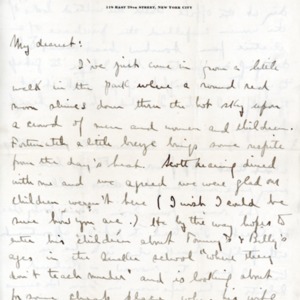 118 EAST 28TH STREET, NEW YORK CITY
My dearest:
I've just come in from a little
walk in the park where a round red
moon shines down thru the hot sky upon
a crowd of men and women and children.
Fortunately a little breeze brings some respite
from the day's heat. Scott Nearing dined
with me and we agreed we were glad our
children weren't here (I wish I could be
sure how you are.) He by the way hopes to
enter his children about Tommy's & Polly's
ages in the Quaker school "where they
don't teach murder" and is looking about
for some cheap place where his wife